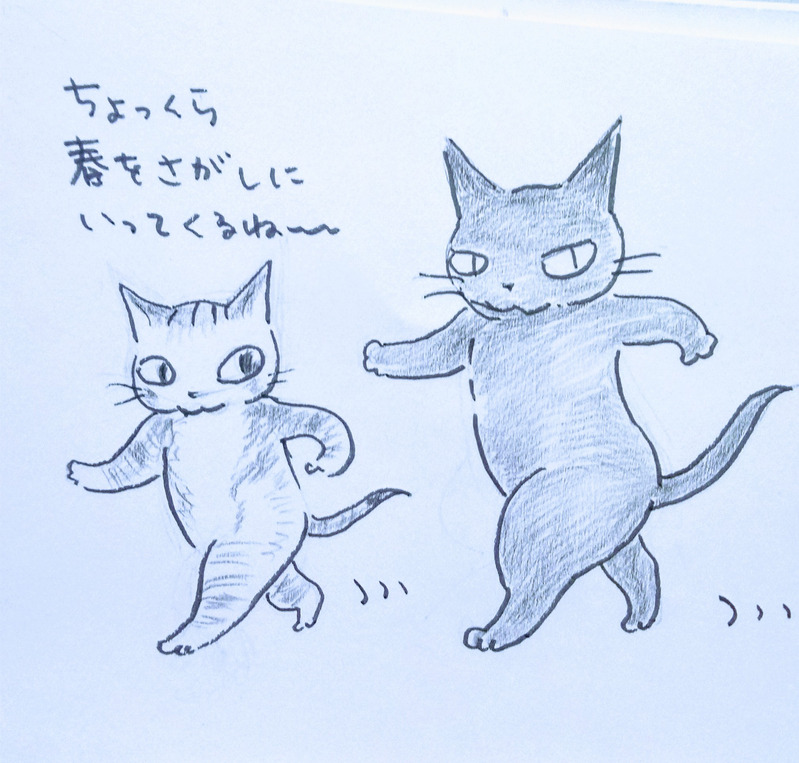 ちょっくら
春をさがしに
いってくるね〜